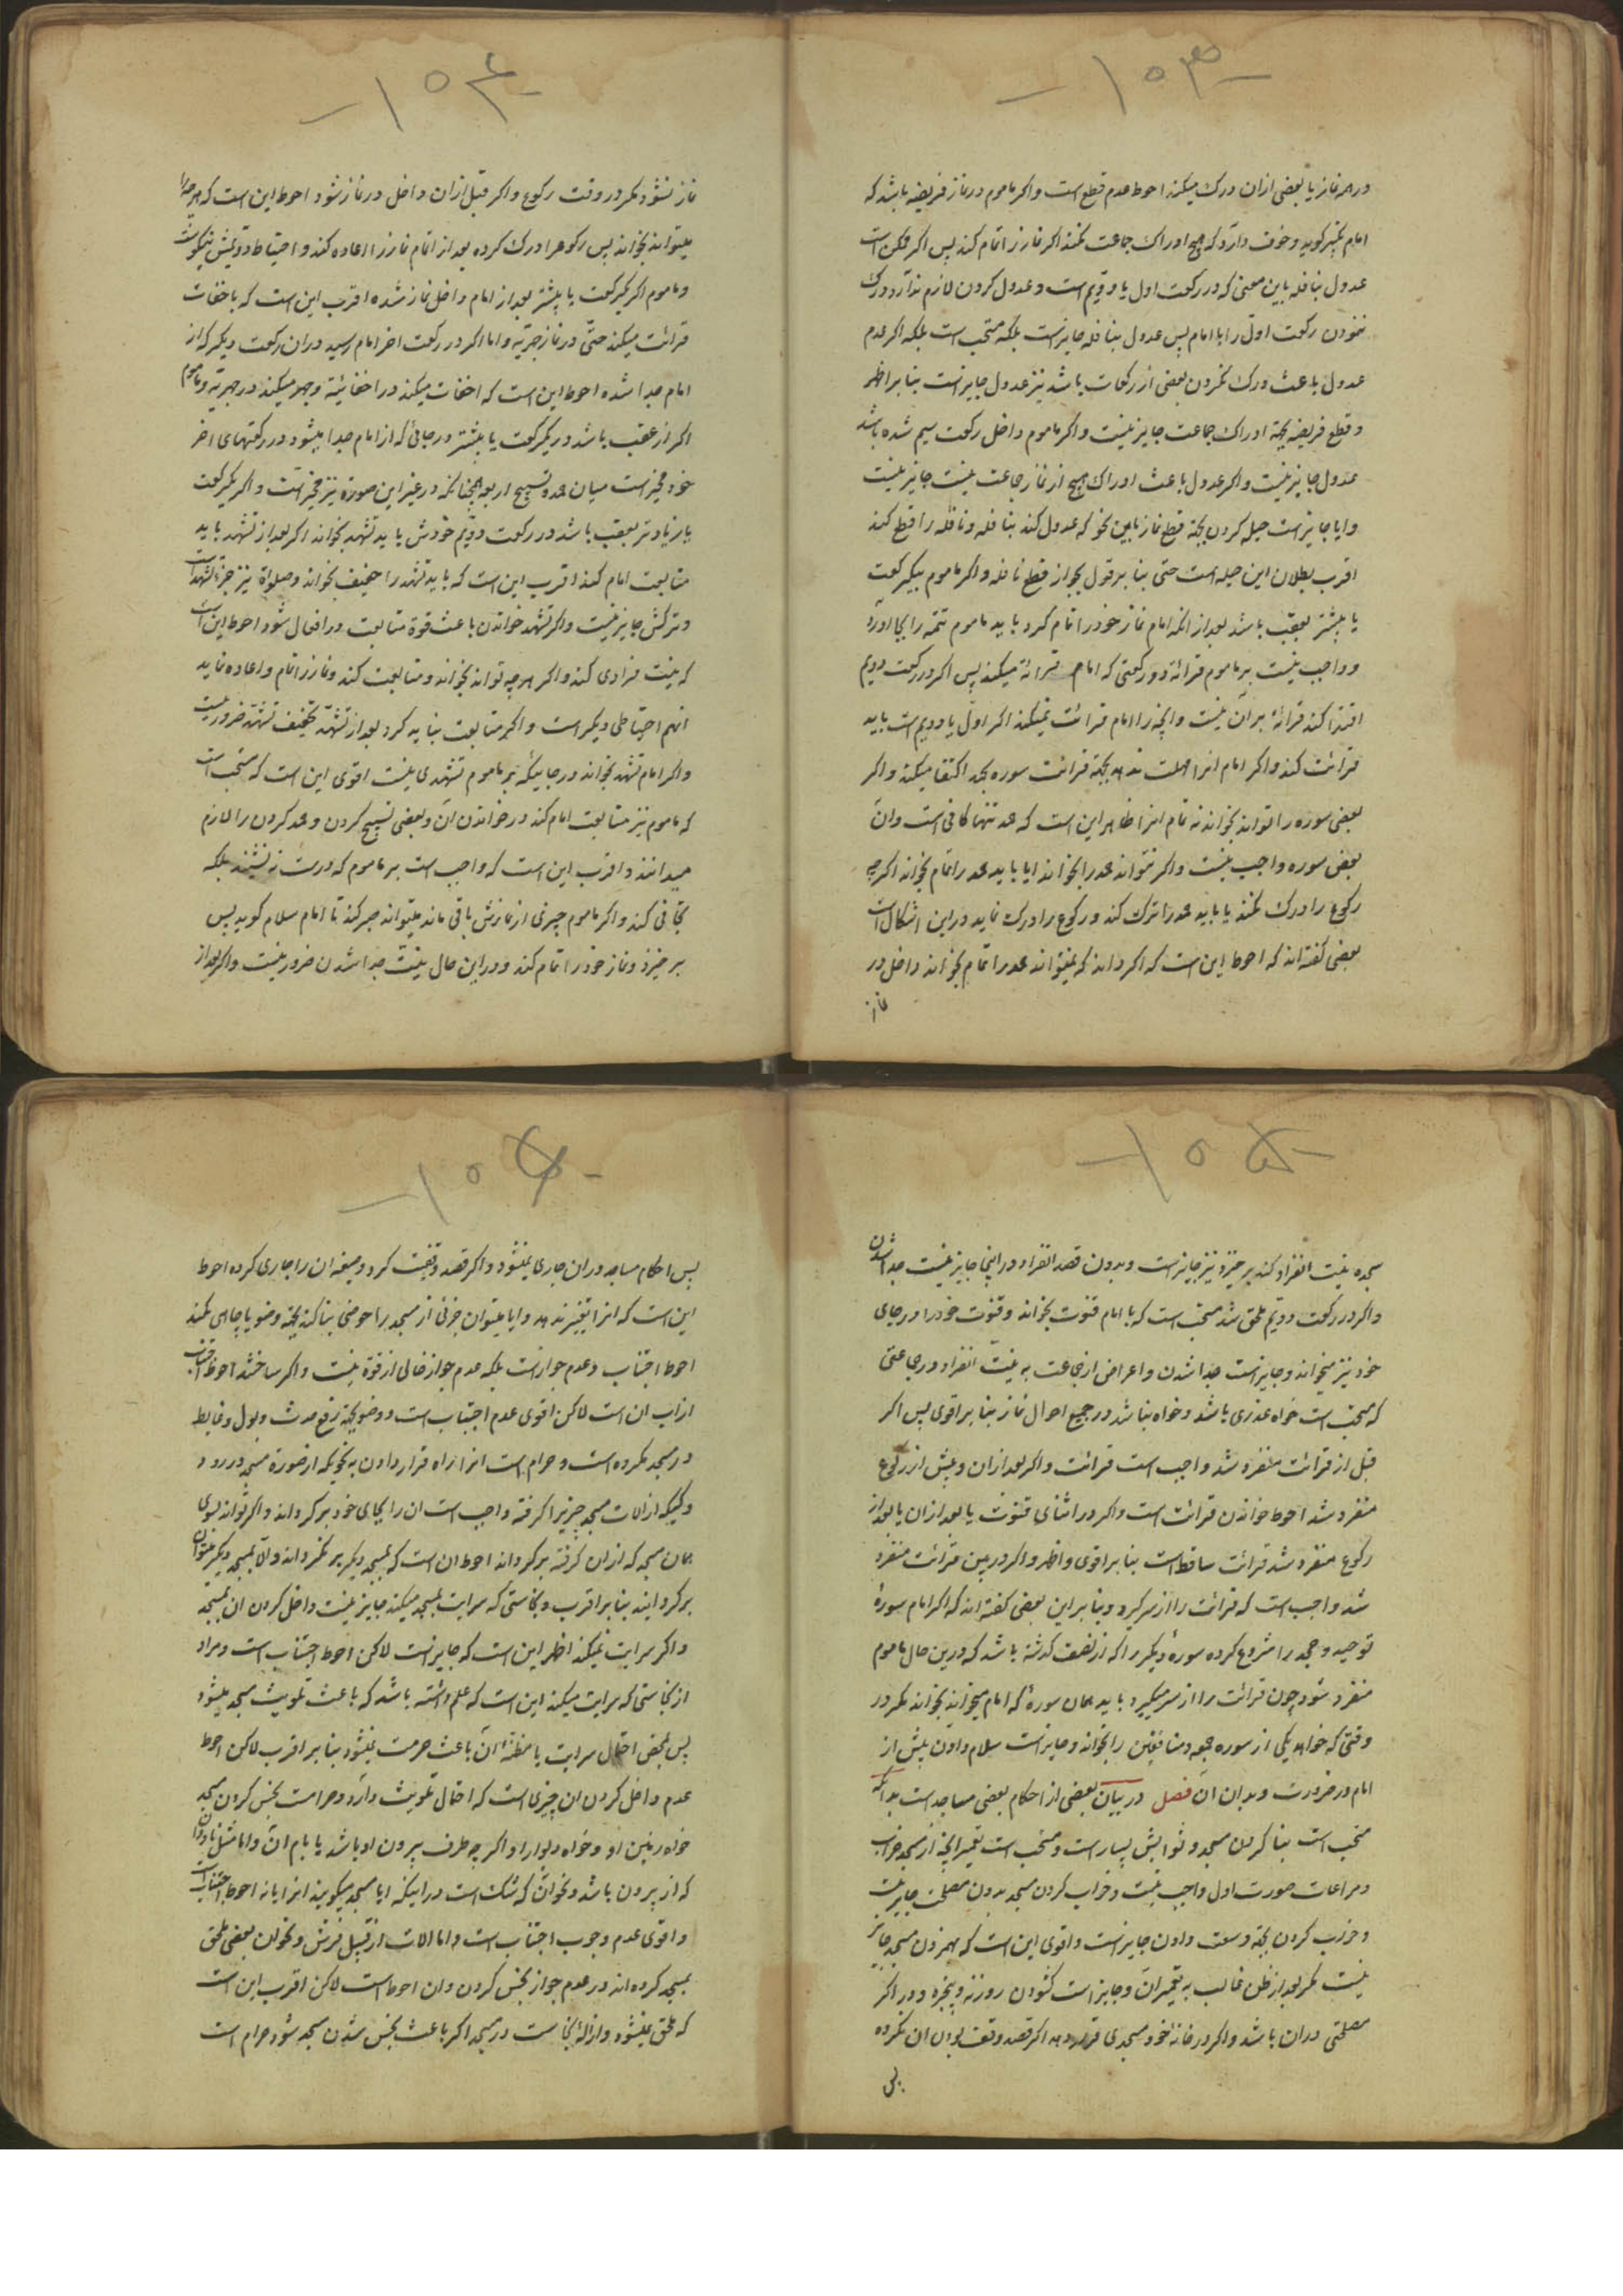 -۱۰۳-
در هر نماز یا بعضی ازان درک میکند احوط عدم قطع است و اکر ماموم در نماز فریضه باشد که
امام تکبیر کوید و خوف دارد که هیچ ادراک جماعت نکند اکر نماز را تمام کند پس اکر ممکن است
عدول بنافله باین معنی که در رکعت اول یا دویم است و عدول کردن لازم ندارد درک
ننمودن رکعت اول را با امام پس عدول بنافله جایز است بلکه مستحب است بلکه اکر عدم
عدول باعث درک نکردن بعضی از رکعات باشد نیز عدول جایز است بنا بر اظهر
و قطع فریضه بجهة ادراک جماعت جایز نیست و اکر ماموم داخل رکعت سیم شده باشد
عدول جایز نیست و اکر عدول باعث ادراک هیچ از نماز جماعت نیست جایز نیست
و ایا جایز است حیله کردن بجهة قطع نماز باین نحو که عدول کند بنافله و نافله را قطع کند
اقرب بطلان این حیله است حتی بنا بر قول بجواز قطع نافله و اکر ماموم بیکرکعت
یا بیشتر بعقب باشد بعد از انکه امام نماز خود را تمام کرد باید ماموم تتمه را بجا آورد
و واجب نیست بر ماموم قرائة دو رکعتی که امام قرائة میکند پس اکر در رکعت دویم
اقتدا کند قرائة بر آن نیست و انچه را امام قرائت نمیکند اکر اول یا دویم است باید
قرائت کند و اکر امام انرا مهلت ندهد بجهة قرائت سوره بحمد اکتفا میکند و اکر
بعضی سوره را تواند بخواند نه تمام انرا ظاهر این است که حمد تنها کافی است و ان
بعض سوره واجب نیست و اکر نتواند حمد را بخواند ایا باید حمد را تمام بخواند اکرچه
رکوع را درک نکند یا باید حمد را ترک کند و رکوع را درک نماید در این اشکال است
بعضی کفته اند که احوط این است که اکر داند که نمیتواند حمد را تمام بخواند داخل در
نماز
-۱۰۴-
نماز نشود مکر در وقت رکوع و اکر قبل ازان داخل در نماز شود احوط این است که هر چه را
میتواند بخواند پس رکوع را درک کرده بعد از اتمام نماز را اعاده کند و احتیاط دویمش نیکوست
و ماموم اکر یکرکعت یا بیشتر بعد از امام داخل نماز شده اقرب این است که باخفات
قرائت میکند حتی در نماز جهریه و اما اکر در رکعت اخر امام رسید در ان رکعت دیکر که از
امام جدا شده احوط این است که اخفات میکند در اخفاتیة و جهر میکند در جهریة و ماموم
اکر از عقب باشد در یکرکعت یا بیشتر در جائی که از امام جدا میشود در رکعتهای اخر
خود مخیر است میان حمد و تسبیح اربعه همچنانکه در غیر این صورة نیز مخیر است و اکر یکرکعت
یا زیادتر بعقب باشد در رکعت دویم خودش باید تشهد بخواند اکر بعد از تشهد باید
متابعت امام کند اقرب این است که باید تشهد را خفیف بخواند و صلوة نیز جزء تشهد است
و ترکش جایز نیست و اکر تشهد خواندن باعث فوة متابعت در افعال شود احوط این است
که نیت فرادی کند و اکر هر چه تواند بخواند و متابعت کند و نماز را تمام و اعاده نماید
انهم احتیاطی دیکر است و اکر متابعت بنماید کرد بعد از تشهد تخفیف تشهد ضرور نیست
و اکر امام تشهد بخواند در جائیکه بر ماموم تشهدی نیست اقوی این است که مستحب است
که ماموم نیز متابعت امام کند در خواندن ان و بعضی تسبیح کردن و حمد کردن را لازم
میدانند و اقرب این است که واجب است بر ماموم که درست ننشیند بلکه
تجافی کند و اکر ماموم چیزی از نمازش باقی ماند میتواند صبر کند تا امام سلام کوید پس
بر خیزد و نماز خود را تمام کند و در این حال نیت جدا شدن ضرور نیست و اکر بعد از
-۱۰۵-
سجده نیت انفراد کند بر خیزد نیز جایز است و بدون قصد انفراد در اینجا جایز نیست جدا شدن
و اکر در رکعت دویم ملحق شد مستحب است که با امام قنوت بخواند و قنوت خود را در جای
خود نیز میخواند و جایز است جدا شدن و اعراض از جماعت به نیت انفراد در جماعتی
که مستحب است خواه عذری باشد و خواه نباشد در جمیع احوال نماز بنا بر اقوی پس اکر
قبل از قرائت منفرد شد واجب است قرائت و اکر بعد ازان و پیش از رکوع
منفرد شد احوط خواندن قرائت است و اکر در اثنای قنوت یا بعد ازان یا بعد از
رکوع منفرد شد قرائت ساقط است بنا بر اقوی و اظهر و اکر در بین قرائت منفرد
شد واجب است که قرائت را از سر کیرد و بنا بر این بعضی کفته اند که اکر امام سورهٔ
توحید و جحد را شروع کرده سورهٔ دیکر را که از نصف کذشته باشد که در ین حال ماموم
منفرد شود چون قرائت را از سر میکیرد باید همان سورهٔ که امام میخواند بخواند مکر در
وقتی که خواهد یکی از سوره جمعه و منافقین را بخواند و جایز است سلام دادن پیش از
امام در ضرورت و بدان ان فصل در بیان بعضی از احکام بعضی مساجد است بدانکه
مستحب است بنا کردن مسجد و ثوابش بسیار است و مستحب است تعمیر انچه از مسجد خراب
و مراعات صورت اول واجب نیست و خراب کردن مسجد بدون مصلحت جایز نیست
و خراب کردن بجهة وسعت دادن جایز است و اقوی این است که مسجد جایز
نیست مکر بعد از ظن غالب به تعمیر ان و جایز است کشودن روزنه و پنجره و در اکر
مصلحتی دران باشد و اکر در خانهٔ خود مسجدی قرار دهد اکر قصد وقف بودن ان نکرده
پس
-۱۰۶-
پس احکام مساجد دران جاری نمیشود و اکر قصد وقفیت کرد و صیغه ان را جاری کرده احوط
این است که انرا تغییر ندهد و ایا میتوان جزئی از مسجد را حوضی بنا کند بجهة وضو یا چاهی بکند
احوط اجتناب و عدم جواز است بلکه عدم جواز خالی از قوة نیست و اکر ساختند احوط اجتناب
ازاب ان است لاکن اقوی عدم اجتناب است و وضو بجهة رفع حدث و بول و غایط
در مسجد مکروه است و حرام است انرا راه قرار دادن بنحویکه از صورة مسجد در رود
و کسیکه از الات مسجد چیزیرا کرفته واجب است ان را بجای خود بر کرداند و اکر تواند بسوی
همان مسجد که ازان کرفته بر کرداند احوط ان است که بمسجد دیکر بر نکرداند و الا بمسجد دیکر میتوان
بر کردانید بنا بر اقرب و نجاستی که سرایت بمسجد میکند جایز نیست داخل کردن ان بمسجد
و اکر سرایت نمیکند اظهر این است که جایز است لاکن احوط اجتناب است و مراد
از نجاستی که سرایت میکند این است که علم داشته باشد که باعث تلویث مسجد میشود
پس بمحض احتمال سرایت یا مظنه ان باعث حرمت نمیشود بنا بر اقرب لاکن احوط
عدم داخل کردن ان چیزی است که احتمال تلویث دارد و حرامست نجس کردن مسجد
خواه زمین او و خواه دیوار او اکر چه طرف بیرون او باشد یا بام ان و اما مثل ناودان
که از بیرون باشد و نحو ان که شک است در اینکه ایا مسجد میکویند انرا یا نه احوط اجتناب است
و اقوی عدم وجوب اجتناب است و اما الات از قبیل فرش و نحو ان بعضی ملحق
بمسجد کرده اند در عدم جواز نجس کردن و ان احوط است لاکن اقرب این است
که ملحق نمیشود و ازالهٔ نجاست در مسجد اکر باعث نجس شدن مسجد شود حرام است